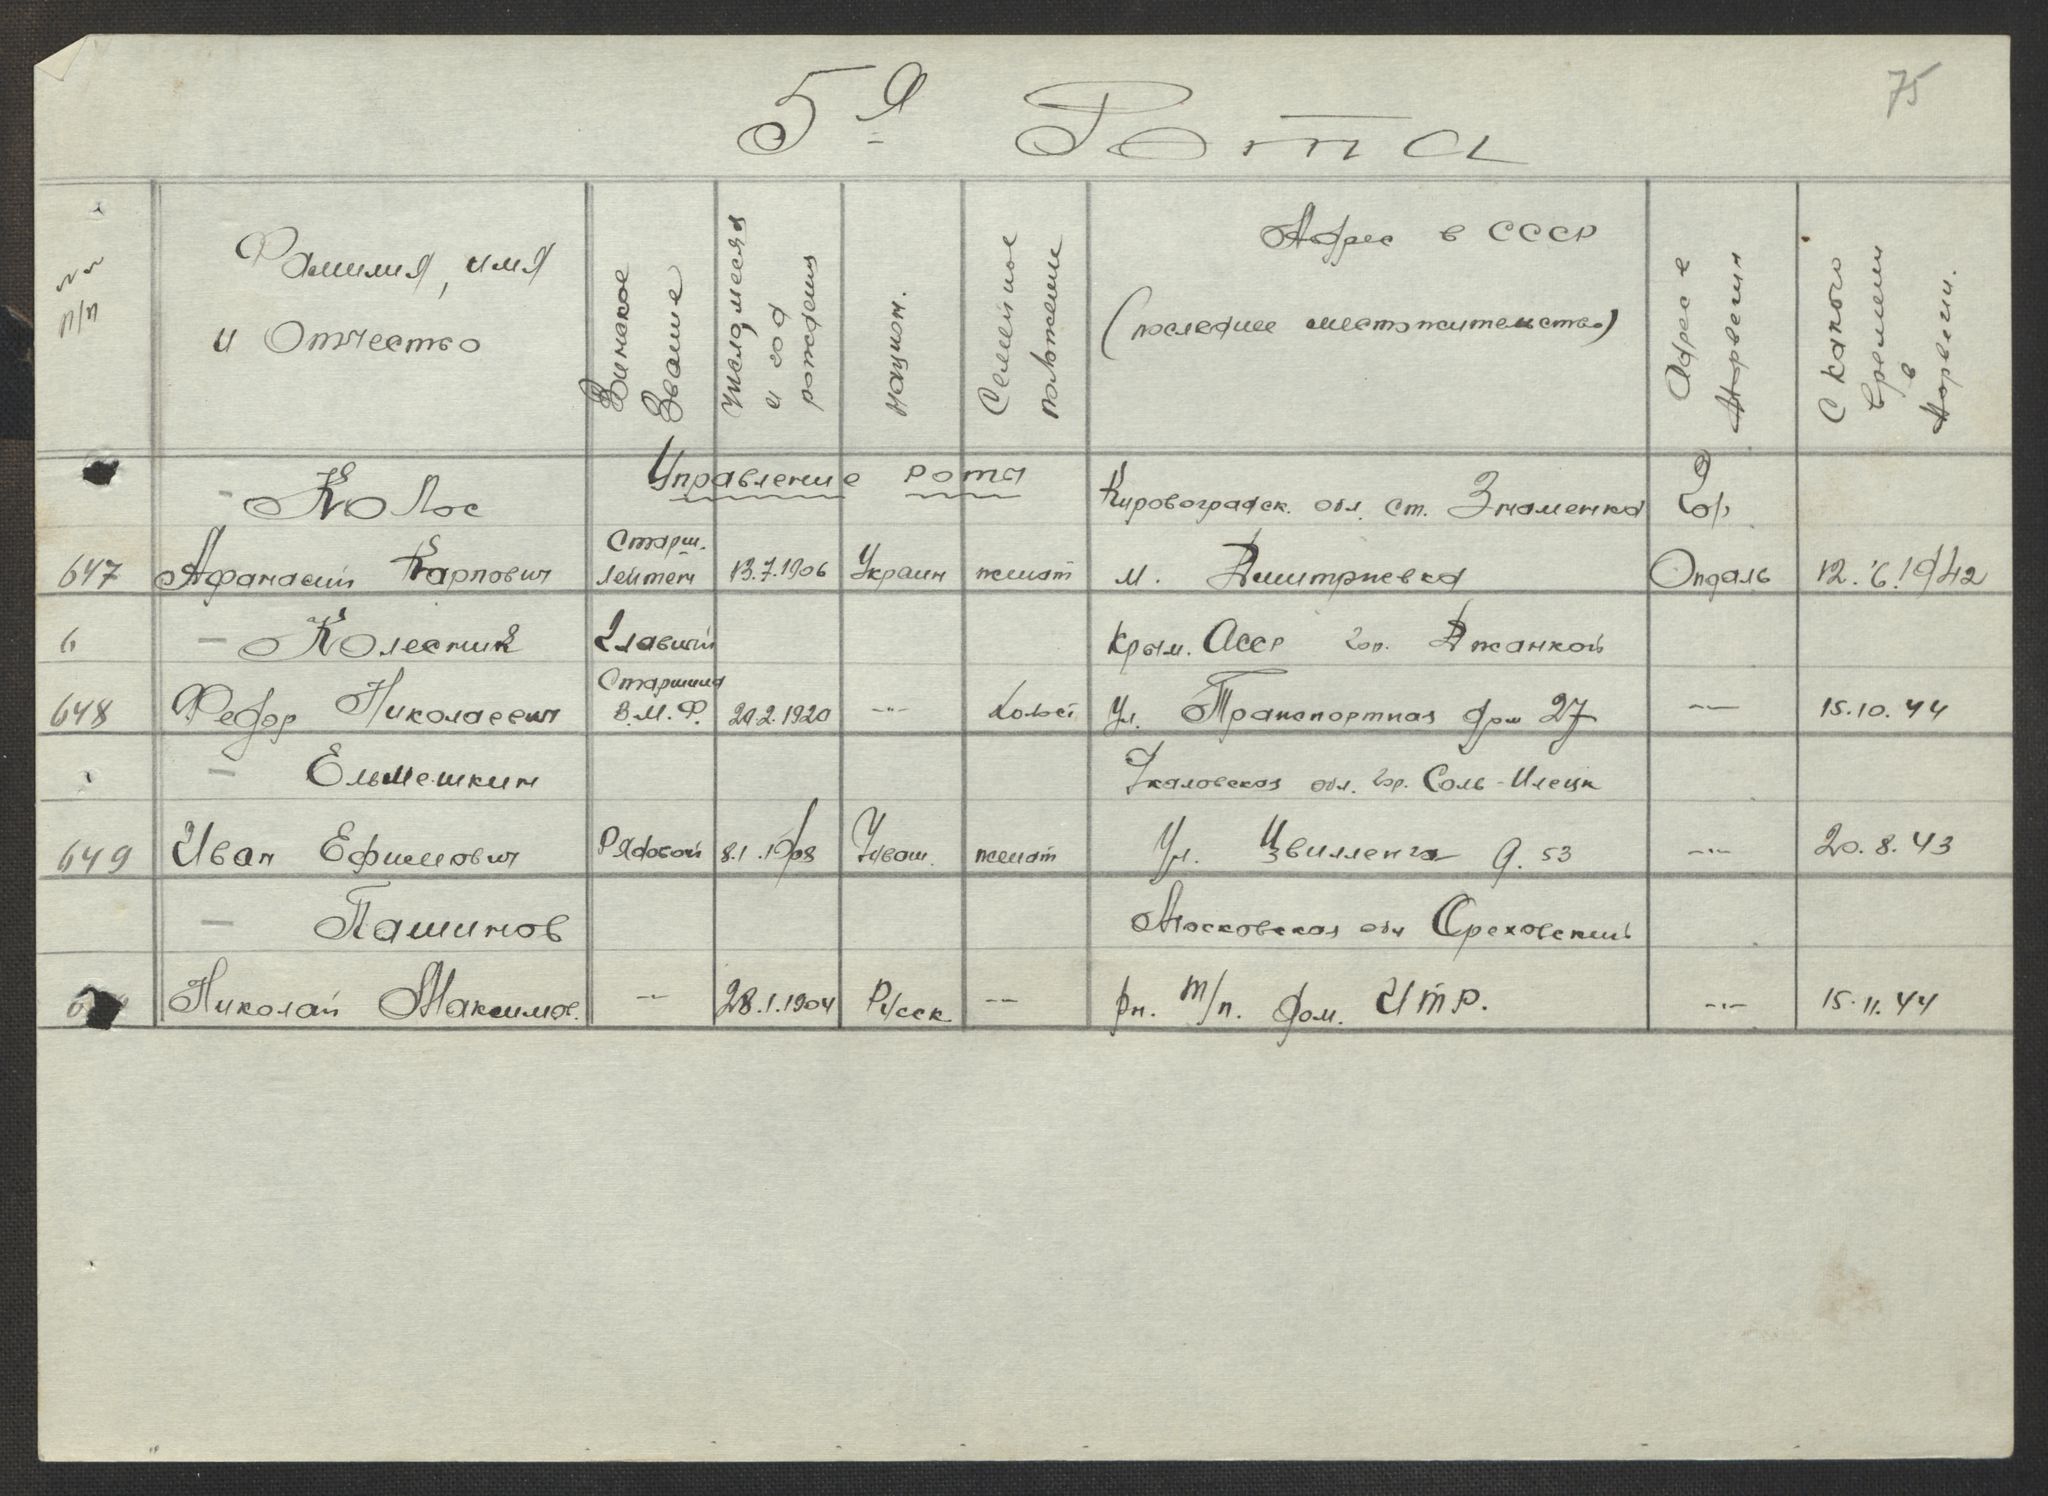 75
5я Рота
№№ п/п
Фамилия, имя
и Отчество
Воинское
Звание
Число, месяц
и год
рождения
национ.
Семейное
положение
Адрес в СССР
(последнее местожительство)
Адрес в
Норвегии
С какого
времени
в
Норвегии.
Управление роты
– Колос Кировоградск. обл. ст. Знаменка Гор.
Старш.
647 Афанасий Карпович Лейтен 13.7.1906 Украин женат м. Дмитриевка Опдаль 12.6.1942
– Колесник Главный Крым. АССР гор. Джанкой
Старшина
648 Федор Николаевич В.М.Ф. 20.2.1920 –"– Холост Ул. Транспортная дом 27 –"– 15.10.44
– Ельмешкин Чкаловская обл. гор. Соль-Илецк
649 Иван Ефимович Рядовой 8.1.1908 Чуваш. женат Ул. Цвиллинга д. 53 –"– 20.8.43
– Пашинов Московская обл Ореховский
Николай Максимов. –"– 28.1.1904 Русск –"– рн. т/п. дом. ИТР. –"– 15.11.44